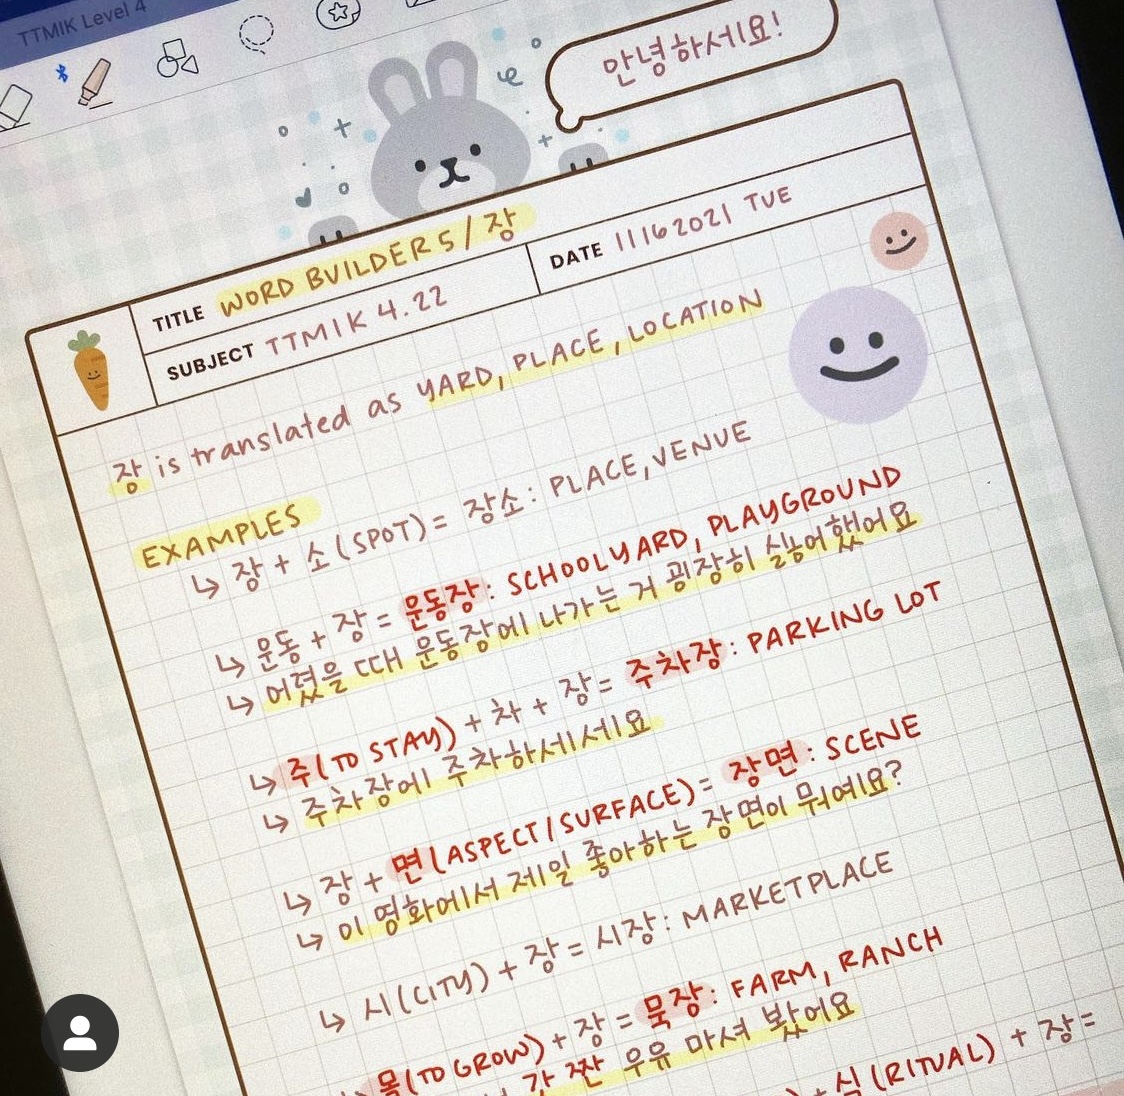 TTMIK Level 4
안녕하세요!
TITLE WORD BUILDER 5 / 장
DATE 11162021 TUE
SUBJECT TTMIK 4.22
장 is translated as YARD, PLACE, LOCATION
EXAMPLES
↳ 장 + 소 (SPOT) = 장소: PLACE, VENUE
↳ 운동 + 장 = 운동장: SCHOOLYARD, PLAYGROUND
↳ 어렸을 때 운동장에 나가는 거 굉장히 싫어했어요
↳ 주(TO STAY) + 차 + 장 = 주차장: PARKING LOT
↳ 주차장에 주차하세세요
↳ 장 + 면(ASPECT/SURFACE) = 장면: SCENE
↳ 이 영화에서 제일 좋아하는 장면이 뭐예요?
↳ 시(CITY) + 장 = 시장: MARKETPLACE
목(TO GROW) + 장 = 목장: FARM, RANCH
갓 짠 우유 마셔 봤어요
) + 식 (RITUAL) + 장 =